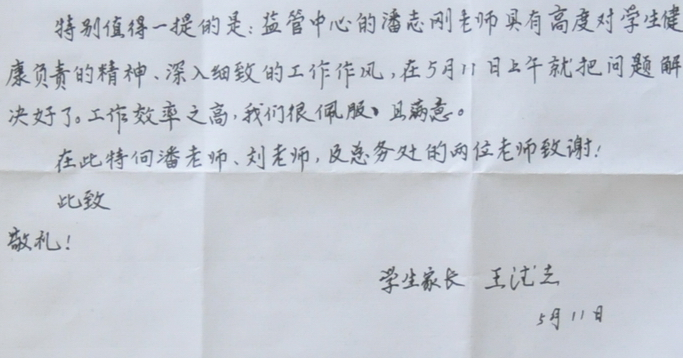 特别值得一提的是：监管中心的潘志刚老师具有高度对学生健
康负责的精神、深入细致的工作作风，在5月11日上午就把问题解
决好了。工作效率之高，我们很佩服、且满意。
在此特向潘老师、刘老师，及总务处的两位老师致谢！
此致
敬礼！
学生家长 王
5月11日